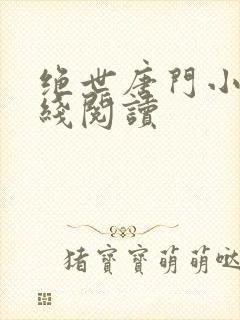 绝世唐門小
綫閱讀
猪寶寶萌萌哒